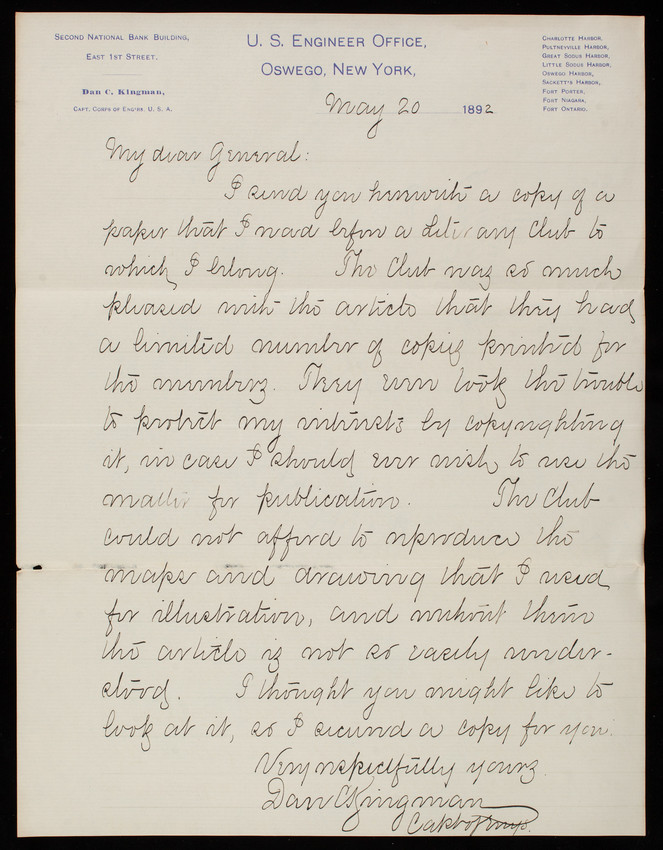 SECOND NATIONAL BANK BUILDING,
EAST 1ST STREET.
Dan C. Kingman,
CAPT. CORPS OF ENG'RS. U. S. A.
U. S. ENGINEER OFFICE,
OSWEGO, NEW YORK,
CHARLOTTE HARBOR,
PULTNEYVILLE HARBOR,
GREAT SODUS HARBOR,
LITTLE SODUS HARBOR,
OSWEGO HARBOR,
SACKETT'S HARBOR,
FORT PORTER,
FORT NIAGARA,
FORT ONTARIO.
May 20 1892
My dear General:
I send you herewith a copy of a
paper that I read before a Literary Club to
which I belong. The Club was so much
pleased with the article that they had
a limited number of copies printed for
the members. They even took the trouble
to protect my interests by copyrighting
it, in case I should ever wish to use the
matter for publication. The Club
could not afford to reproduce the
maps and drawing that I used
for illustration, and without them
the article is not so easily under-
stood. I thought you might like to
look at it, so I secured a copy for you.
Very respectfully yours
Dan C Kingman
Capt of Engrs.